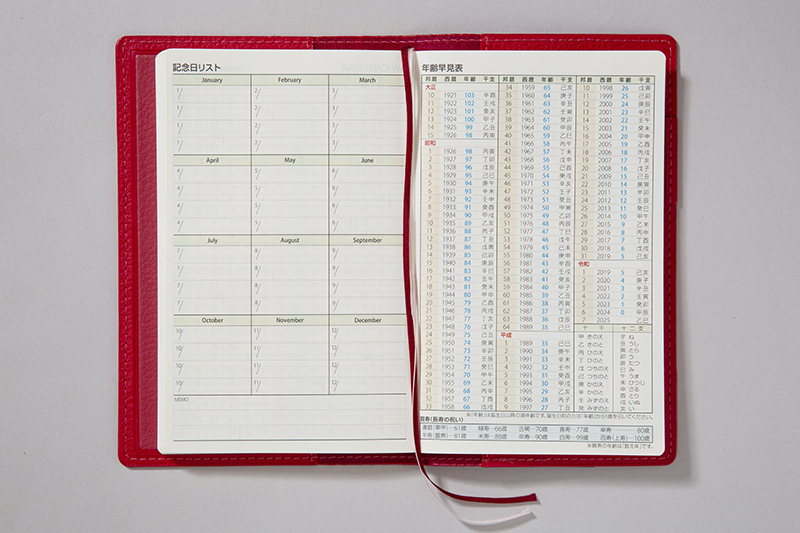 記念日リスト
January February March
1/ 2/ 3/
1/ 2/ 3/
1/ 2/ 3/
1/ 2/ 3/
April May June
4/ 5/ 6/
4/ 5/ 6/
4/ 5/ 6/
4/ 5/ 6/
July August September
7/ 8/ 9/
7/ 8/ 9/
7/ 8/ 9/
7/ 8/ 9/
October November December
10/ 11/ 12/
10/ 11/ 12/
10/ 11/ 12/
10/ 11/ 12/
MEMO
年齢早見表
邦暦 西暦 年齢 干支
大正
10 1921 103 辛酉
11 1922 102 壬戌
12 1923 101 癸亥
13 1924 100 甲子
14 1925 99 乙丑
15 1926 98 丙寅
昭和
1 1926 98 丙寅
2 1927 97 丁卯
3 1928 96 戊辰
4 1929 95 己巳
5 1930 94 庚午
6 1931 93 辛未
7 1932 92 壬申
8 1933 91 癸酉
9 1934 90 甲戌
10 1935 89 乙亥
11 1936 88 丙子
12 1937 87 丁丑
13 1938 86 戊寅
14 1939 85 己卯
15 1940 84 庚辰
16 1941 83 辛巳
17 1942 82 壬午
18 1943 81 癸未
19 1944 80 甲申
20 1945 79 乙酉
21 1946 78 丙戌
22 1947 77 丁亥
23 1948 76 戊子
24 1949 75 己丑
25 1950 74 庚寅
26 1951 73 辛卯
27 1952 72 壬辰
28 1953 71 癸巳
29 1954 70 甲午
30 1955 69 乙未
31 1956 68 丙申
32 1957 67 丁酉
33 1958 66 戊戌
邦暦 西暦 年齢 干支
34 1959 65 己亥
35 1960 64 庚子
36 1961 63 辛丑
37 1962 62 壬寅
38 1963 61 癸卯
39 1964 60 甲辰
40 1965 59 乙巳
41 1966 58 丙午
42 1967 57 丁未
43 1968 56 戊申
44 1969 55 己酉
45 1970 54 庚戌
46 1971 53 辛亥
47 1972 52 壬子
48 1973 51 癸丑
49 1974 50 甲寅
50 1975 49 乙卯
51 1976 48 丙辰
52 1977 47 丁巳
53 1978 46 戊午
54 1979 45 己未
55 1980 44 庚申
56 1981 43 辛酉
57 1982 42 壬戌
58 1983 41 癸亥
59 1984 40 甲子
60 1985 39 乙丑
61 1986 38 丙寅
62 1987 37 丁卯
63 1988 36 戊辰
64 1989 35 己巳
平成
1 1989 35 己巳
2 1990 34 庚午
3 1991 33 辛未
4 1992 32 壬申
5 1993 31 癸酉
6 1994 30 甲戌
7 1995 29 乙亥
8 1996 28 丙子
9 1997 27 丁丑
邦暦 西暦 年齢 干支
10 1998 26 戊寅
11 1999 25 己卯
12 2000 24 庚辰
13 2001 23 辛巳
14 2002 22 壬午
15 2003 21 癸未
16 2004 20 甲申
17 2005 19 乙酉
18 2006 18 丙戌
19 2007 17 丁亥
20 2008 16 戊子
21 2009 15 己丑
22 2010 14 庚寅
23 2011 13 辛卯
24 2012 12 壬辰
25 2013 11 癸巳
26 2014 10 甲午
27 2015 9 乙未
28 2016 8 丙申
29 2017 7 丁酉
30 2018 6 戊戌
31 2019 5 己亥
令和
1 2019 5 己亥
2 2020 4 庚子
3 2021 3 辛丑
4 2022 2 壬寅
5 2023 1 癸卯
6 2024 0 甲辰
7 2025 乙巳
十干 十二支
甲 きのえ 子 ね
乙 きのと 丑 うし
丙 ひのえ 寅 とら
丁 ひのと 卯 う
戊 つちのえ 辰 たつ
己 つちのと 巳 み
庚 かのえ 午 うま
辛 かのと 未 ひつじ
壬 みずのえ 申 さる
癸 みずのと 酉 とり
戌 いぬ
亥 い
※「年齢」は誕生日以降の満年齢です。誕生日前の方は「年齢」から1歳を引いてください。
賀寿(長寿の祝い)
還暦(華甲)…61歳 緑寿…66歳 古稀…70歳 喜寿…77歳 傘寿……80歳
半寿(盤寿)…81歳 米寿…88歳 卒寿…90歳 白寿…99歳 百寿(上寿)…100歳
※賀寿の年齢は「数え年」です。